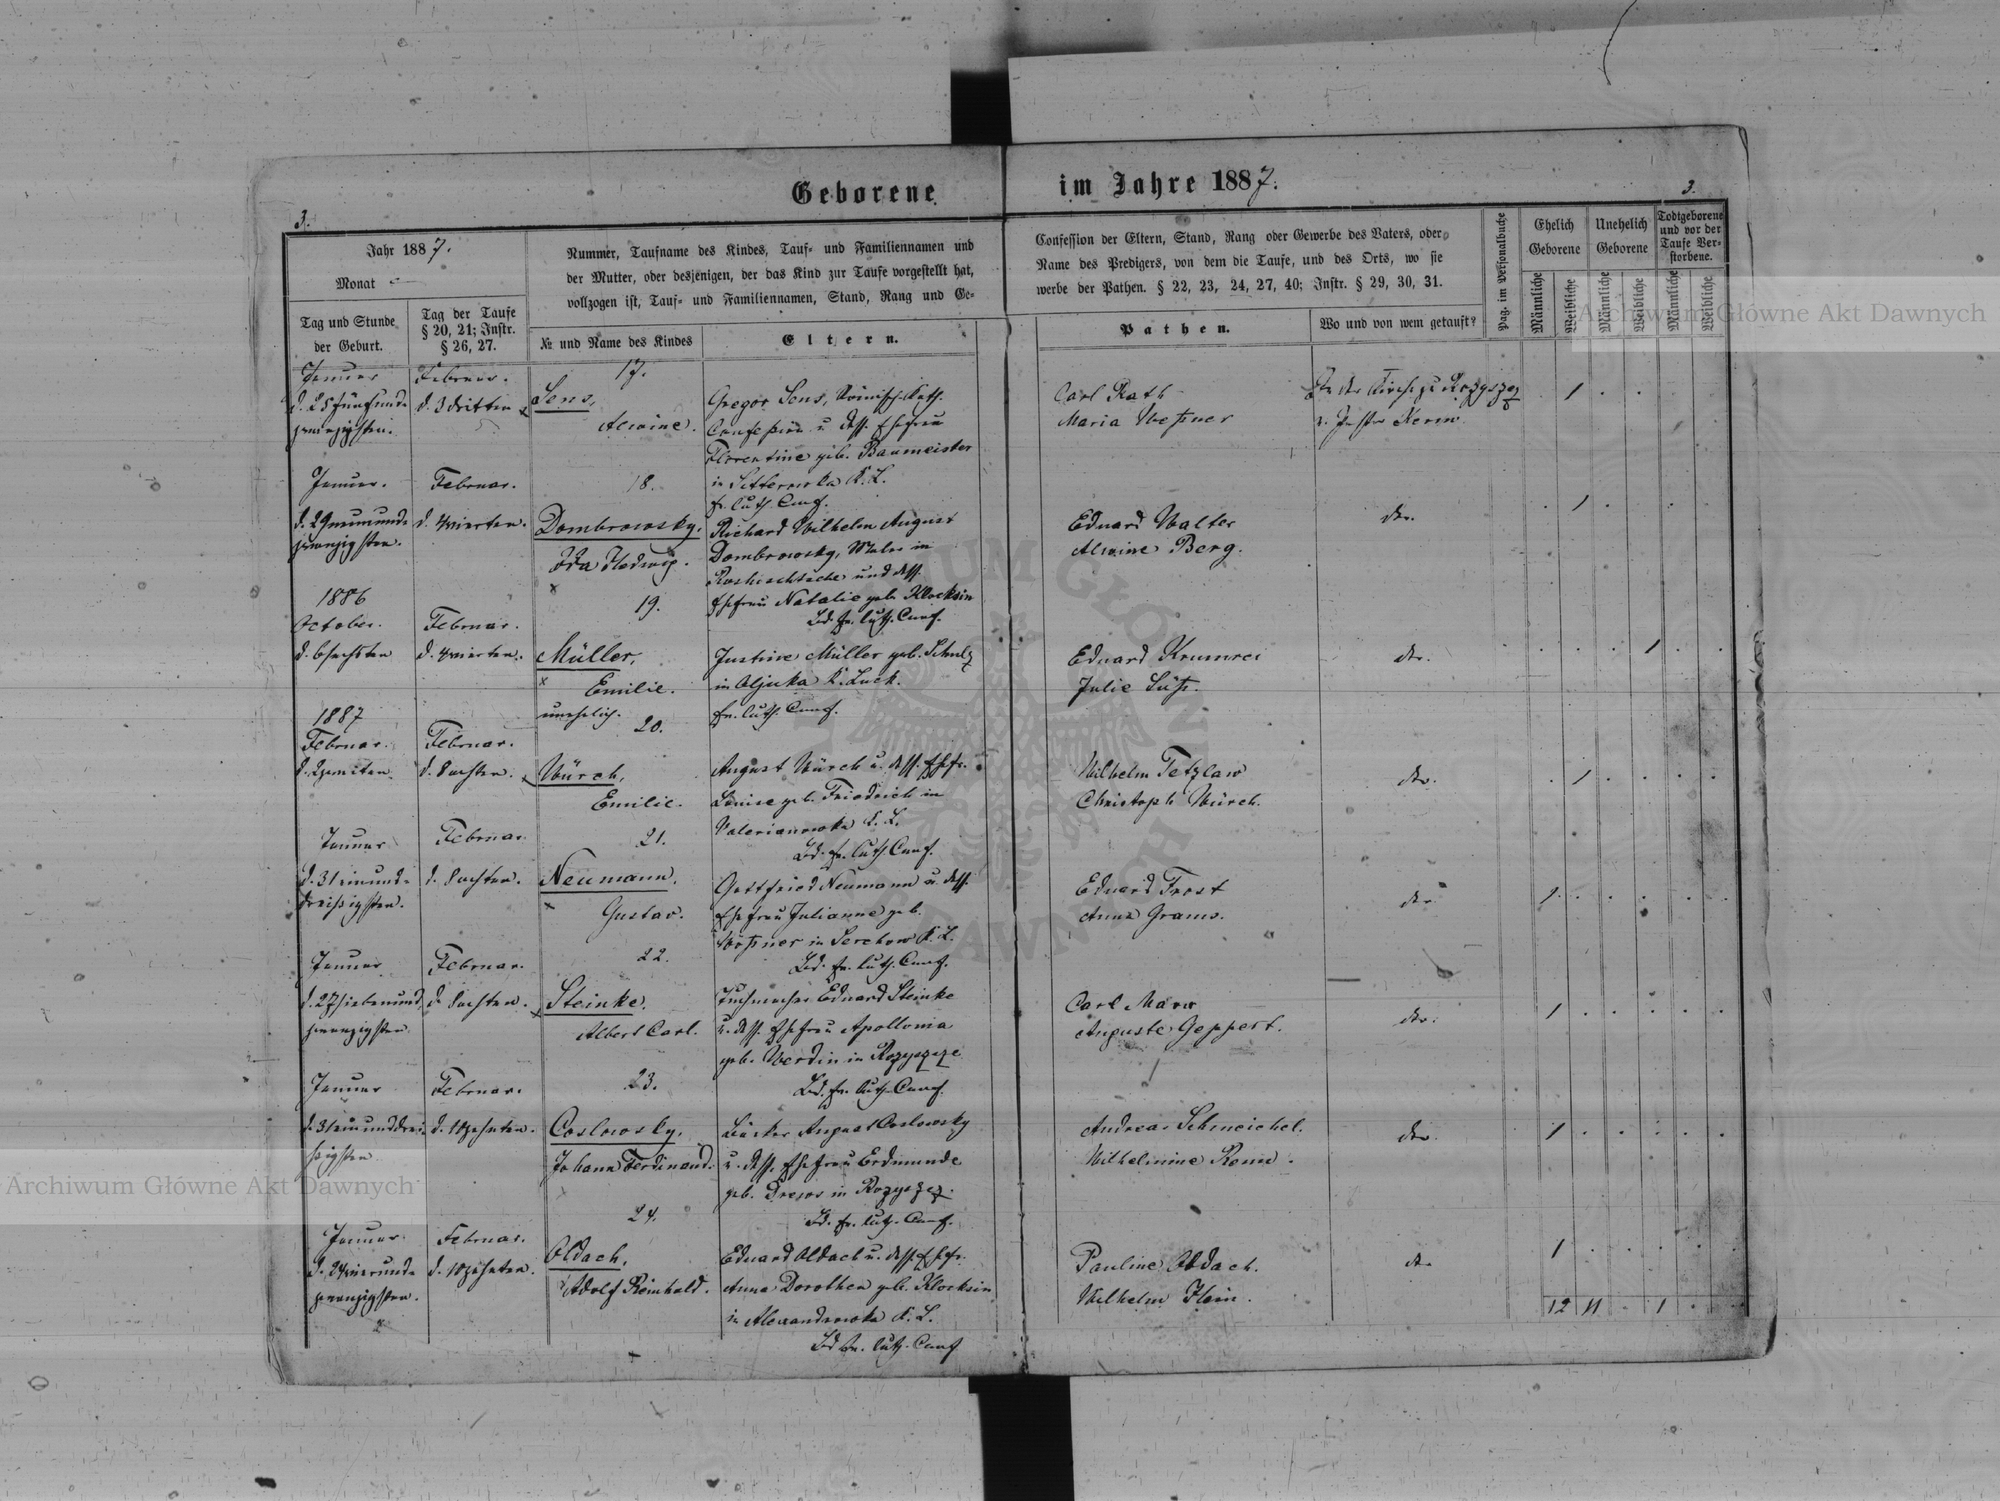 Geborene im Jahre 1887.
3.
3.
Jahr 1887.
Monat
Tag und Stunde
der Geburt.
Tag der Taufe
§ 20, 21; Instr.
§ 26, 27.
Nummer, Taufname des Kindes, Tauf- und Familiennamen und
der Mutter, oder desjenigen, der das Kind zur Taufe vorgestellt hat,
vollzogen ist, Tauf- und Familiennamen, Stand, Rang und Ge-
№ und Name des Kindes
Eltern.
Confession der Eltern, Stand, Rang oder Gewerbe des Vaters, oder
Name des Predigers, von dem die Taufe, und des Orts, wo sie
werbe der Pathen. § 22, 23, 24, 27, 40; Instr. § 29, 30, 31.
Pathen.
Wo und von wem getauft?
Pag. im Personalbuche
Ehelich
Geborene
Unehelich
Geborene
Todtgeborene
und vor der
Taufe Ver-
storbene.
Männliche
Weibliche
Männliche
Weibliche
Männliche
Weibliche
Januar
d. 25 fünfund-
zwanzigsten.
Februar.
d. 3 dritten
17.
Sens,
Alwine.
Gregor Sens, Römisch-Kath.
Confession u. dess. Ehefrau
Florentine geb. Baumeister
in K. L.
ev. luth. Conf.
Carl Rath
Maria Weßner
In der Kirche zu Rozyszcz
v. Pastor Kerm
1
Januar.
d. 29 neunund-
zwanzigsten.
Februar.
d. 4 vierten.
18.
Dombrowsky,
Ida Hedwig.
Richard Wilhelm August
Dombrowsky, in
und dess.
Ehefrau Natalie geb. Klocksin
Bd. ev. luth. Conf.
Eduard Walter
Alwine Berg.
do.
1
1886
October.
d. 6 sechsten
Februar.
d. 4 vierten.
19.
Müller,
Emilie.
unehelich.
Justine Müller geb. Schulz
in Aljuka K. Luck.
ev. luth. Conf.
Eduard Krumrei
Julie Süß.
do.
1
1887
Februar.
d. 2 zweiten
Februar.
d. 8 achten.
20.
Würch,
Emilie.
August Würch u. dess. Ehefr.
Louise geb. Friedrich in
Valerianowka K. L.
Bd. ev. luth. Conf.
Wilhelm Tetzlaw
Christoph Würch.
do.
1
Januar
d. 31 einund-
dreißigsten.
Februar
d. 8 achten.
21.
Neumann,
Gustav.
Gottfried Neumann u. dess.
Ehefrau Julianne geb.
in Serchow K. L.
Bd. ev. luth. Conf.
Eduard Frost
Anna Grams.
do.
1
Januar
d. 27 siebenund-
zwanzigsten
Februar.
d. 8 achten.
22.
Steinke,
Albert Carl.
Tuchmacher Eduard Steinke
u. dess. Ehefrau Apollonia
geb. Werdin in Rozyszcze
Bd. ev. luth. Conf.
Carl Marx
Auguste Geppert.
do.
1
Januar
d. 31 einunddrei-
ßigsten
Februar.
d. 10 zehnten.
23.
Coslowsky,
Johann Ferdinand.
Bäcker August Coslowsky
u. dess. Ehefrau Erdmunde
geb. Drews in Rozyszcz.
Bd. ev. luth. Conf.
Andreas Schmeichel.
Wilhelmine Renn.
do.
1
Januar
d. 24 vierund-
zwanzigsten.
Februar.
d. 10 zehnten.
24.
Oldach,
Adolf Reinhold.
Eduard Oldach u. dess. Ehefr.
Anna Dorothea geb. Klocksin
in Alexandrowka K. L.
Bd. ev. luth. Conf
Pauline Oldach.
Wilhelm Klein.
do
1
12 11 1
Archiwum Główne Akt Dawnych
Archiwum Główne Akt Dawnych